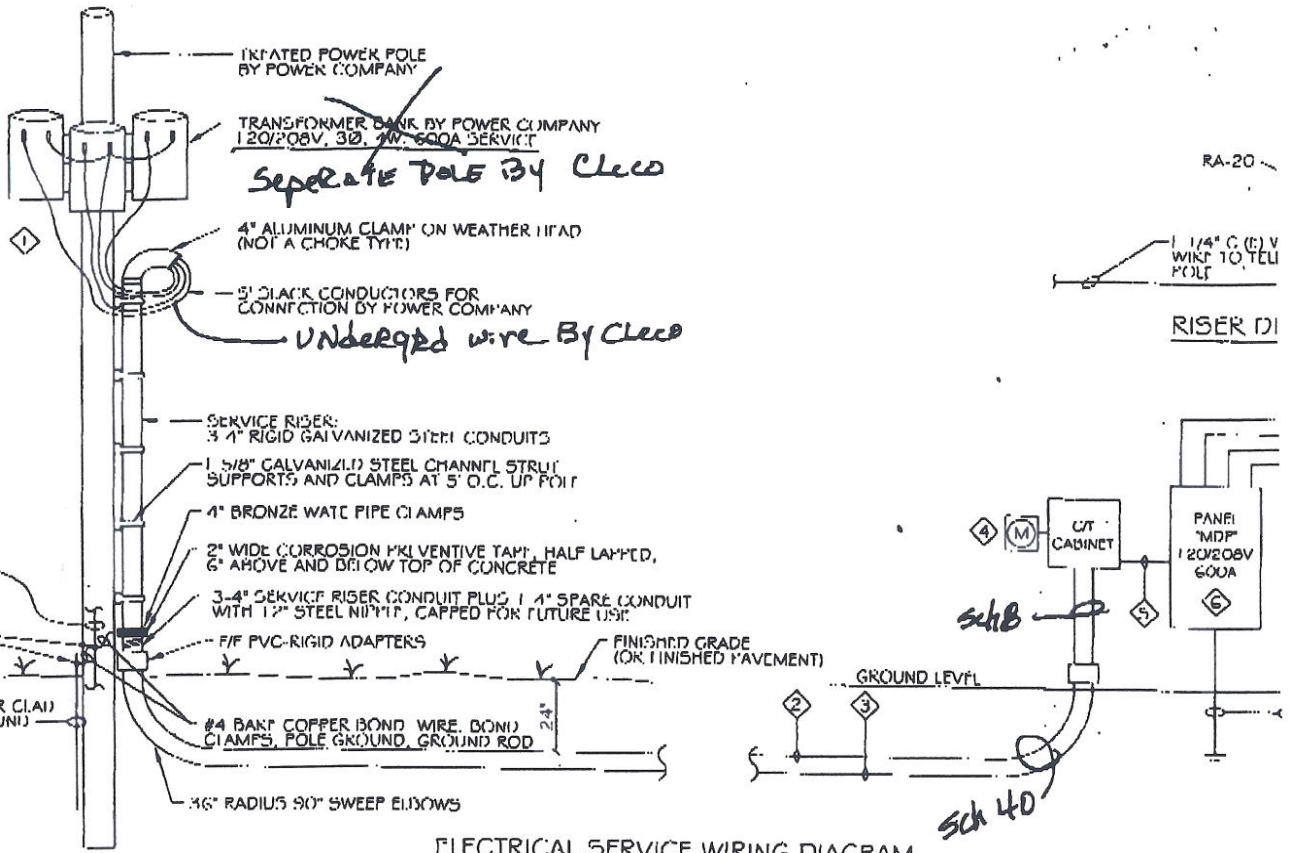 TREATED POWER POLE
BY POWER COMPANY
TRANSFORMER BANK BY POWER COMPANY
120/208V, 3Ø, 4W, 600A SERVICE
SepeRate PoLE By Cleco
4" ALUMINUM CLAMP ON WEATHER HEAD
(NOT A CHOKE TYPE)
5' SLACK CONDUCTORS FOR
CONNECTION BY POWER COMPANY
UNdeRgRd wire By Cleco
SERVICE RISER:
3 4" RIGID GALVANIZED STEEL CONDUITS
1 5/8" GALVANIZED STEEL CHANNEL STRUT
SUPPORTS AND CLAMPS AT 5' O.C. UP POLE
4" BRONZE WATE PIPE CLAMPS
2" WIDE CORROSION PREVENTIVE TAPE, HALF LAPPED,
6" ABOVE AND BELOW TOP OF CONCRETE
3-4" SERVICE RISER CONDUIT PLUS 1 4" SPARE CONDUIT
WITH 12" STEEL NIPPLE, CAPPED FOR FUTURE USE
F/F PVC-RIGID ADAPTERS
FINISHED GRADE
(OR FINISHED PAVEMENT)
#4 BARE COPPER BOND WIRE, BOND
CLAMPS, POLE GROUND, GROUND ROD
24"
36" RADIUS 90° SWEEP ELBOWS
R CLAD
UND
1
RA-20
1 1/4" C (E) V
WIRE TO TELE
POLE
RISER DI
4
M
C/T
CABINET
PANEL
"MDP"
120/208V
600A
6
5
Sch 8
GROUND LEVEL
2
3
Sch 40
ELECTRICAL SERVICE WIRING DIAGRAM